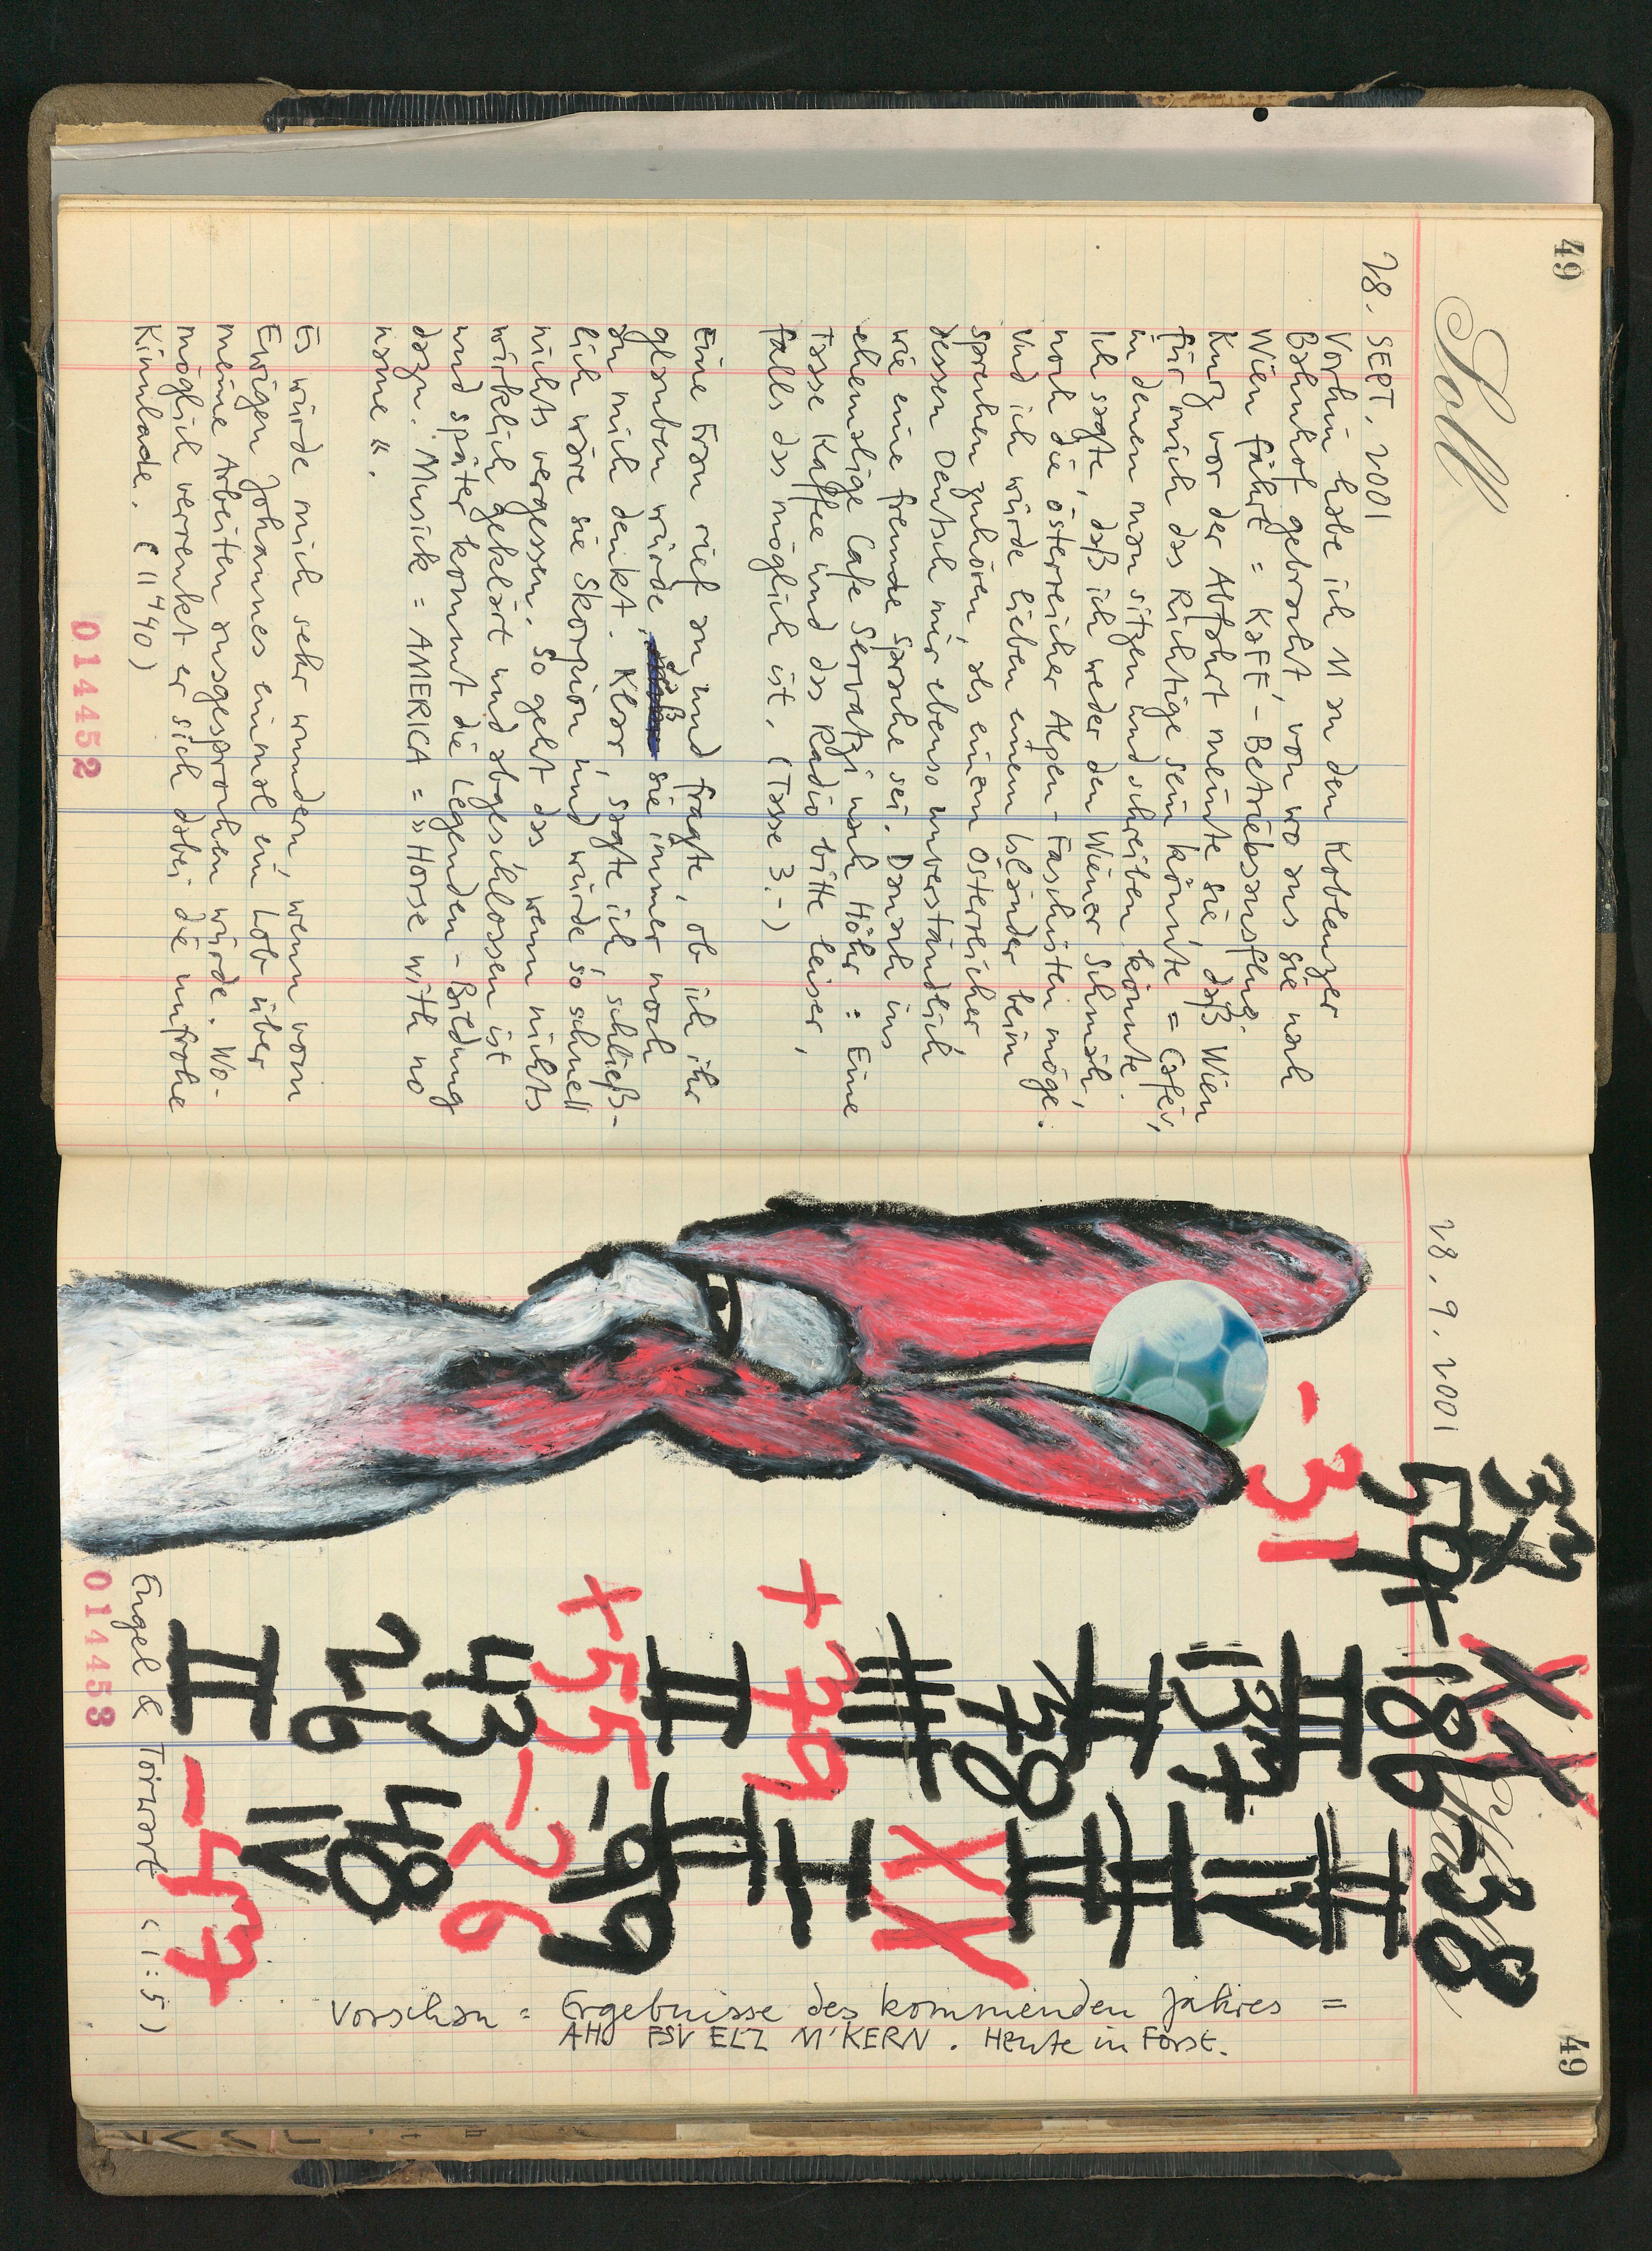 49
Soll
28. SEPT. 2001
Vorhin habe ich M an den Koblenzer
Bahnhof gebracht, von wo aus sie nach
Wien fährt = KaFF'-Betriebsausflug.
Kurz vor der Abfahrt meinte sie, daß Wien
für mich das Richtige sein könnte = Cafés,
in denen man sitzen und schreiben könnte.
Ich sagte, daß ich weder den Wiener Schmäh,
noch die österreicher Alpen-Faschisten möge.
Und ich würde lieber einem Isländer beim
sprechen zuhören, als einem Österreicher
dessen Deutsch mir ebenso unverständlich
wie eine fremde Sprache sei. Danach ins
ehemalige Cafe Servatzi nach Höhr: Eine
Tasse Kaffee und das Radio bitte leiser,
falls das möglich ist. (Tasse 3.-)
Eine Frau rief an und fragte, ob ich ihr
glauben würde, daß sie immer noch
an mich denkt. Klar, sagte ich, schließ-
lich wäre sie Skorpion und würde so schnell
nichts vergessen. So geht das wenn nichts
wirklich geklärt und abgeschlossen ist
und später kommt die Legenden-Bildung
dazu. Musick = AMERICA = »Horse with no
name«.
Es würde mich sehr wundern, wenn vom
Ewigen Johannes einmal ein Lob über
meine Arbeiten ausgesprochen würde. Wo-
möglich verrenkt er sich dabei die unfrohe
Kinnlade. (11⁴⁴⁰)
014452
28. 9. 2001
49
XX
54
186
738
-31
II
II
137
IV
II
78
II
III
XX
+39
I
II
II
+55
-69
43
-26
26
48
IV
II
-47
Engel & Torwart (1:5)
014453
Vorschau: Ergebnisse des kommenden Jahres =
AH FSV ELZ M'KERN. Heute in Forst.